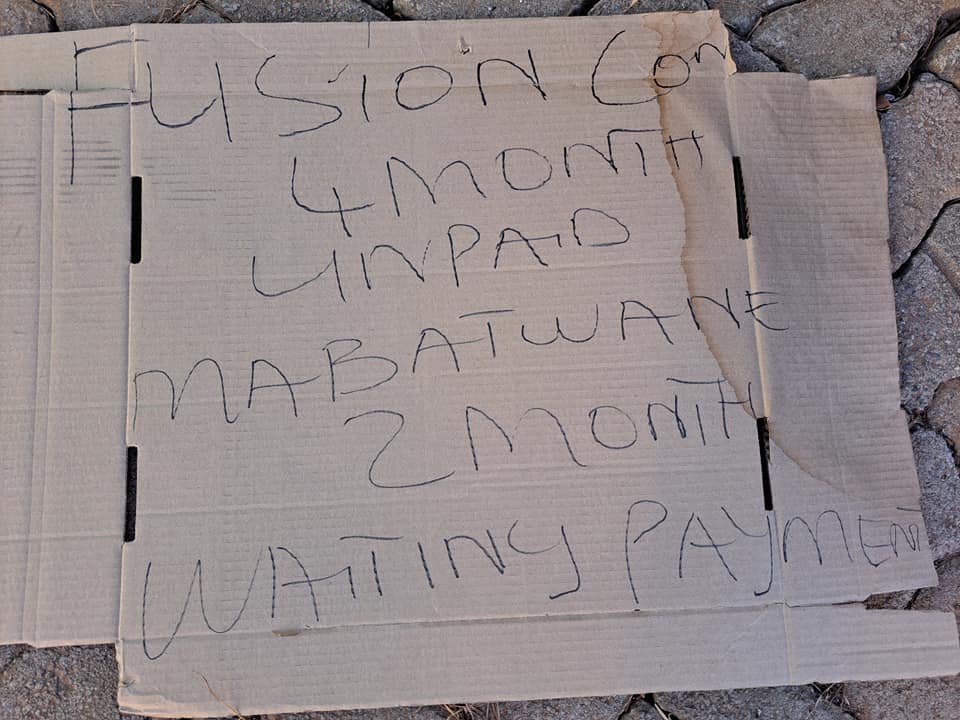 FUSION Con
4 MONTH
UNPAID
MABATWANE
2 MONTH
WAITING PAYMENT